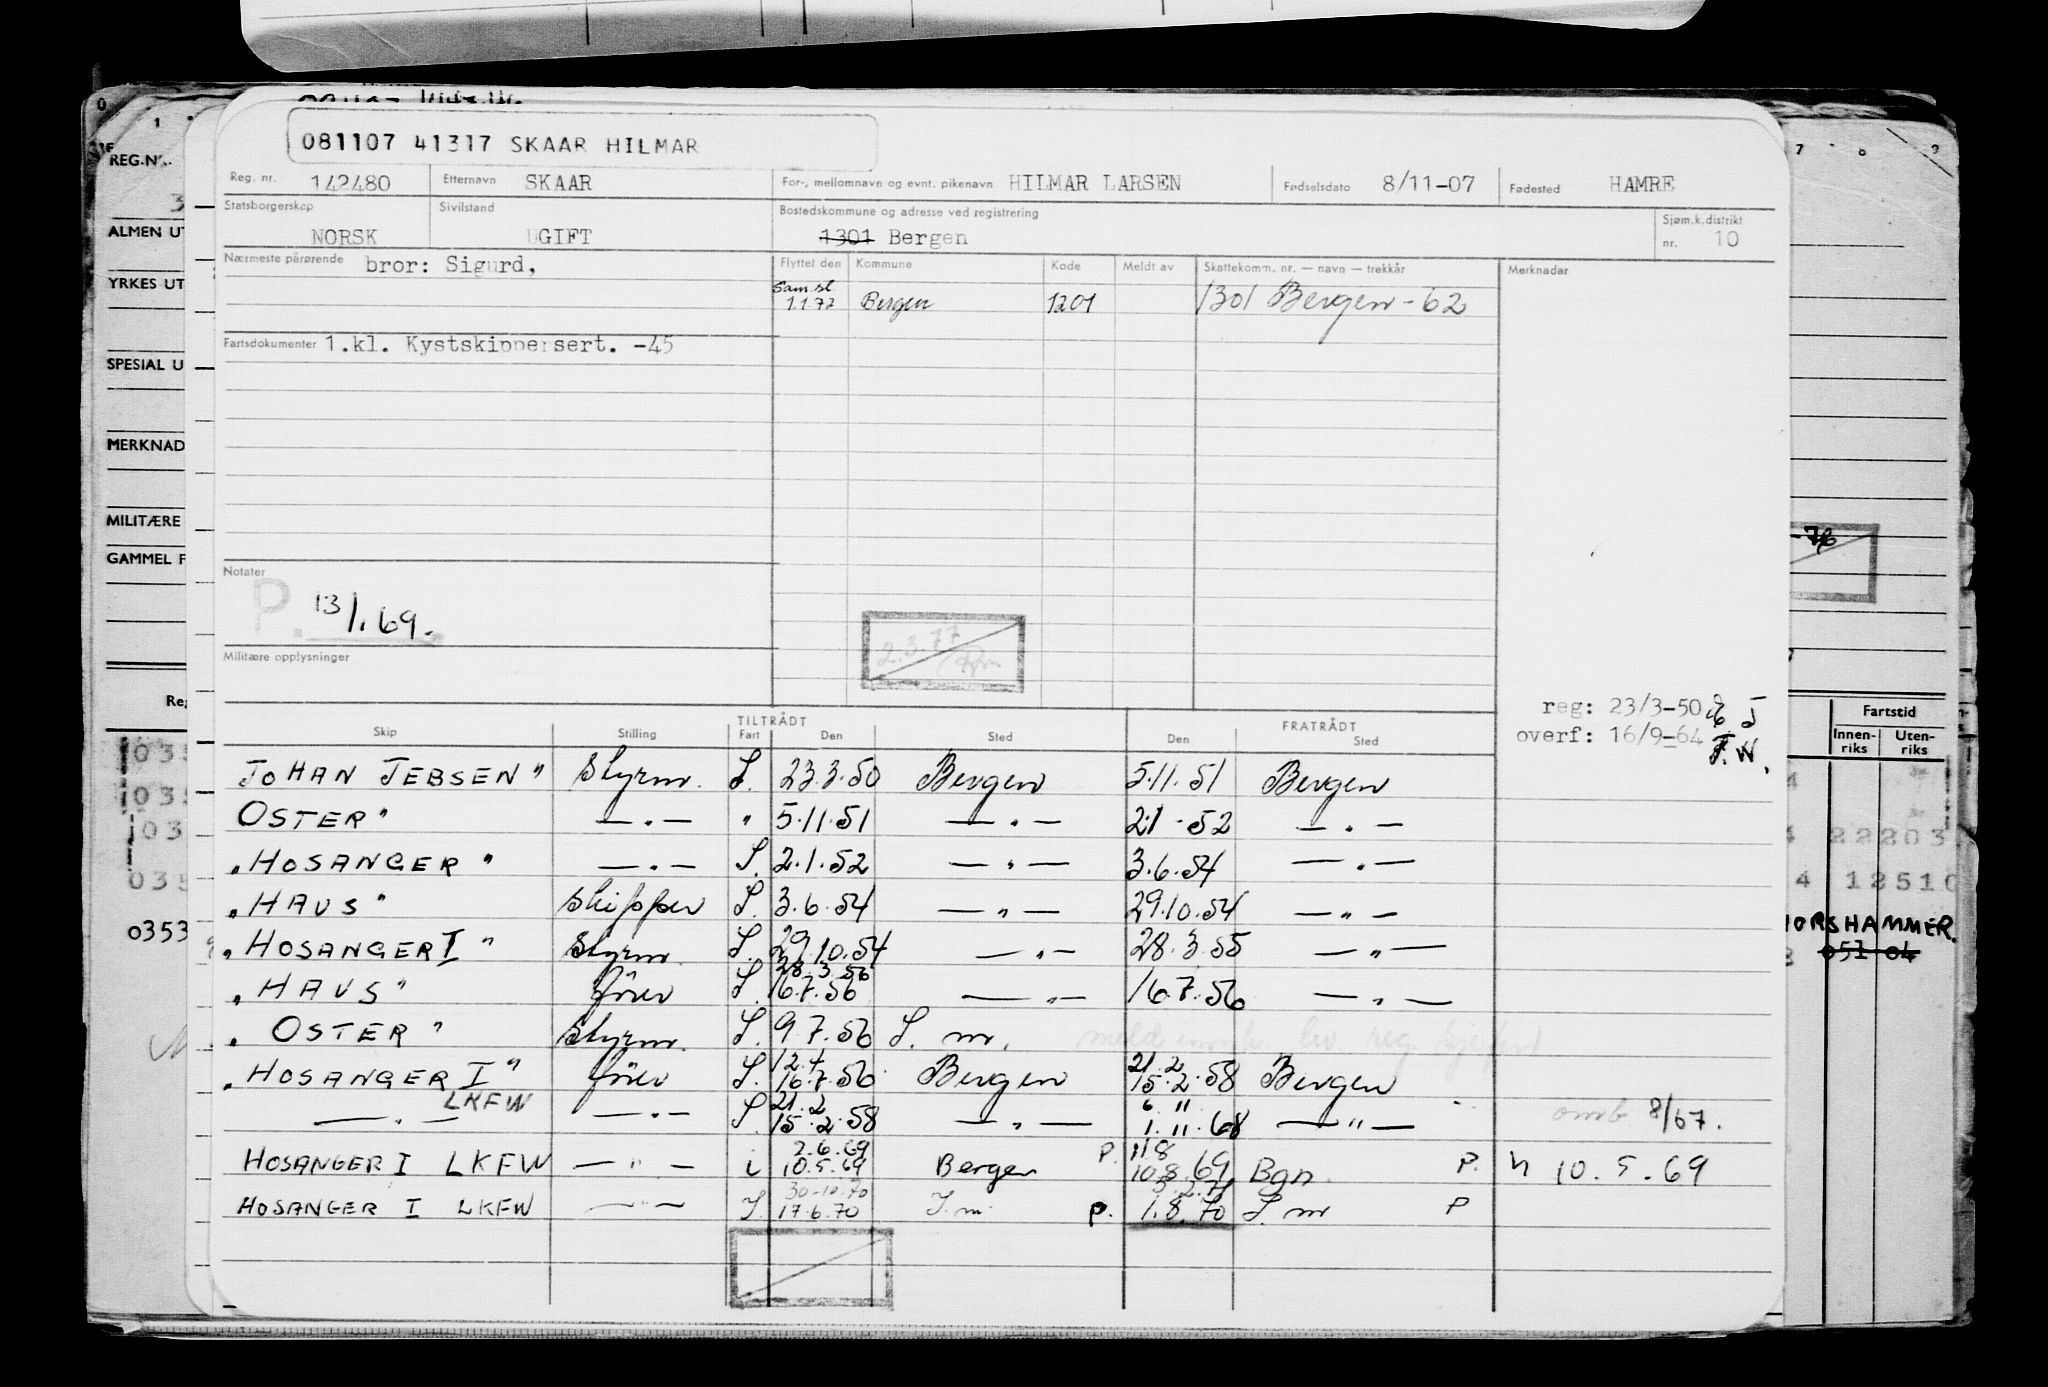 081107 41317 SKAAR HILMAR
Reg. nr. 142480 Etternavn SKAAR For-, mellomnavn og evnt. pikenavn HILMAR LARSEN Fødselsdato 8/11-07 Fødested HAMRE
Statsborgerskap NORSK Sivilstand UGIFT Bostedskommune og adresse ved registrering 1301 Bergen Sjøm.k.distrikt nr. 10
Nærmeste pårørende bror: Sigurd,
Flyttet den Kommune Kode Meldt av Skattekomm. nr. — navn — trekkår Merknader
Sam.sl.
1.1.72 Bergen 1201 1301 Bergen - 62
Fartsdokumenter 1.kl. Kystskippersert. -45
Notater
P. 13/1.69.
2.3.77
Militære opplysninger
reg: 23/3-50
overf: 16/9-64 F.W.
TILTRÅDT FRATRÅDT
Skip Stilling Fart Den Sted Den Sted
JOHAN JEBSEN" Styrm. L. 23.3.50 Bergen 5.11.51 Bergen
OSTER" — " — " 5.11.51 — " — 2.1-52 — " —
"HOSANGER" — " — L. 2.1.52 — " — 3.6.54 — " —
"HAUS" Skipper L. 3.6.54 — " — 29.10.54 — " —
"HOSANGER I" Styrm. L. 29.10.54 — " — 28.3.55 — " —
28.3.56
"HAUS" förer L. 16.7.56 — " — 16.7.56 — " —
"OSTER" Styrm. L. 9.7.56 L. m.
12.7
21.2
"HOSANGER I" förer L. 16.7.56 Bergen 15.2.58 Bergen
LKFW
21.2
6.11
— " — — " — L. 15.2.58 — " — 1.11.68 — " — omb 8/67.
2.6.69
11.8
HOSANGER I LKFW — " — i 10.5.69 Bergen P. 10.8.69 Bgn. P. n 10.5.69
30-10.70
3.2.71
HOSANGER I LKFW — " — I. 17.6.70 I. m. P. 1.8.70 L. m P
REG.NR.
ALMEN UT
YRKES UT
SPESIAL U
MERKNAD
MILITÆRE
GAMMEL F
Reg
035
035
035
035
0353
7 8 9
-76
Fartstid
Innen-
riks
Uten-
riks
22203
4 12510
HORSHAMMER.
051 04